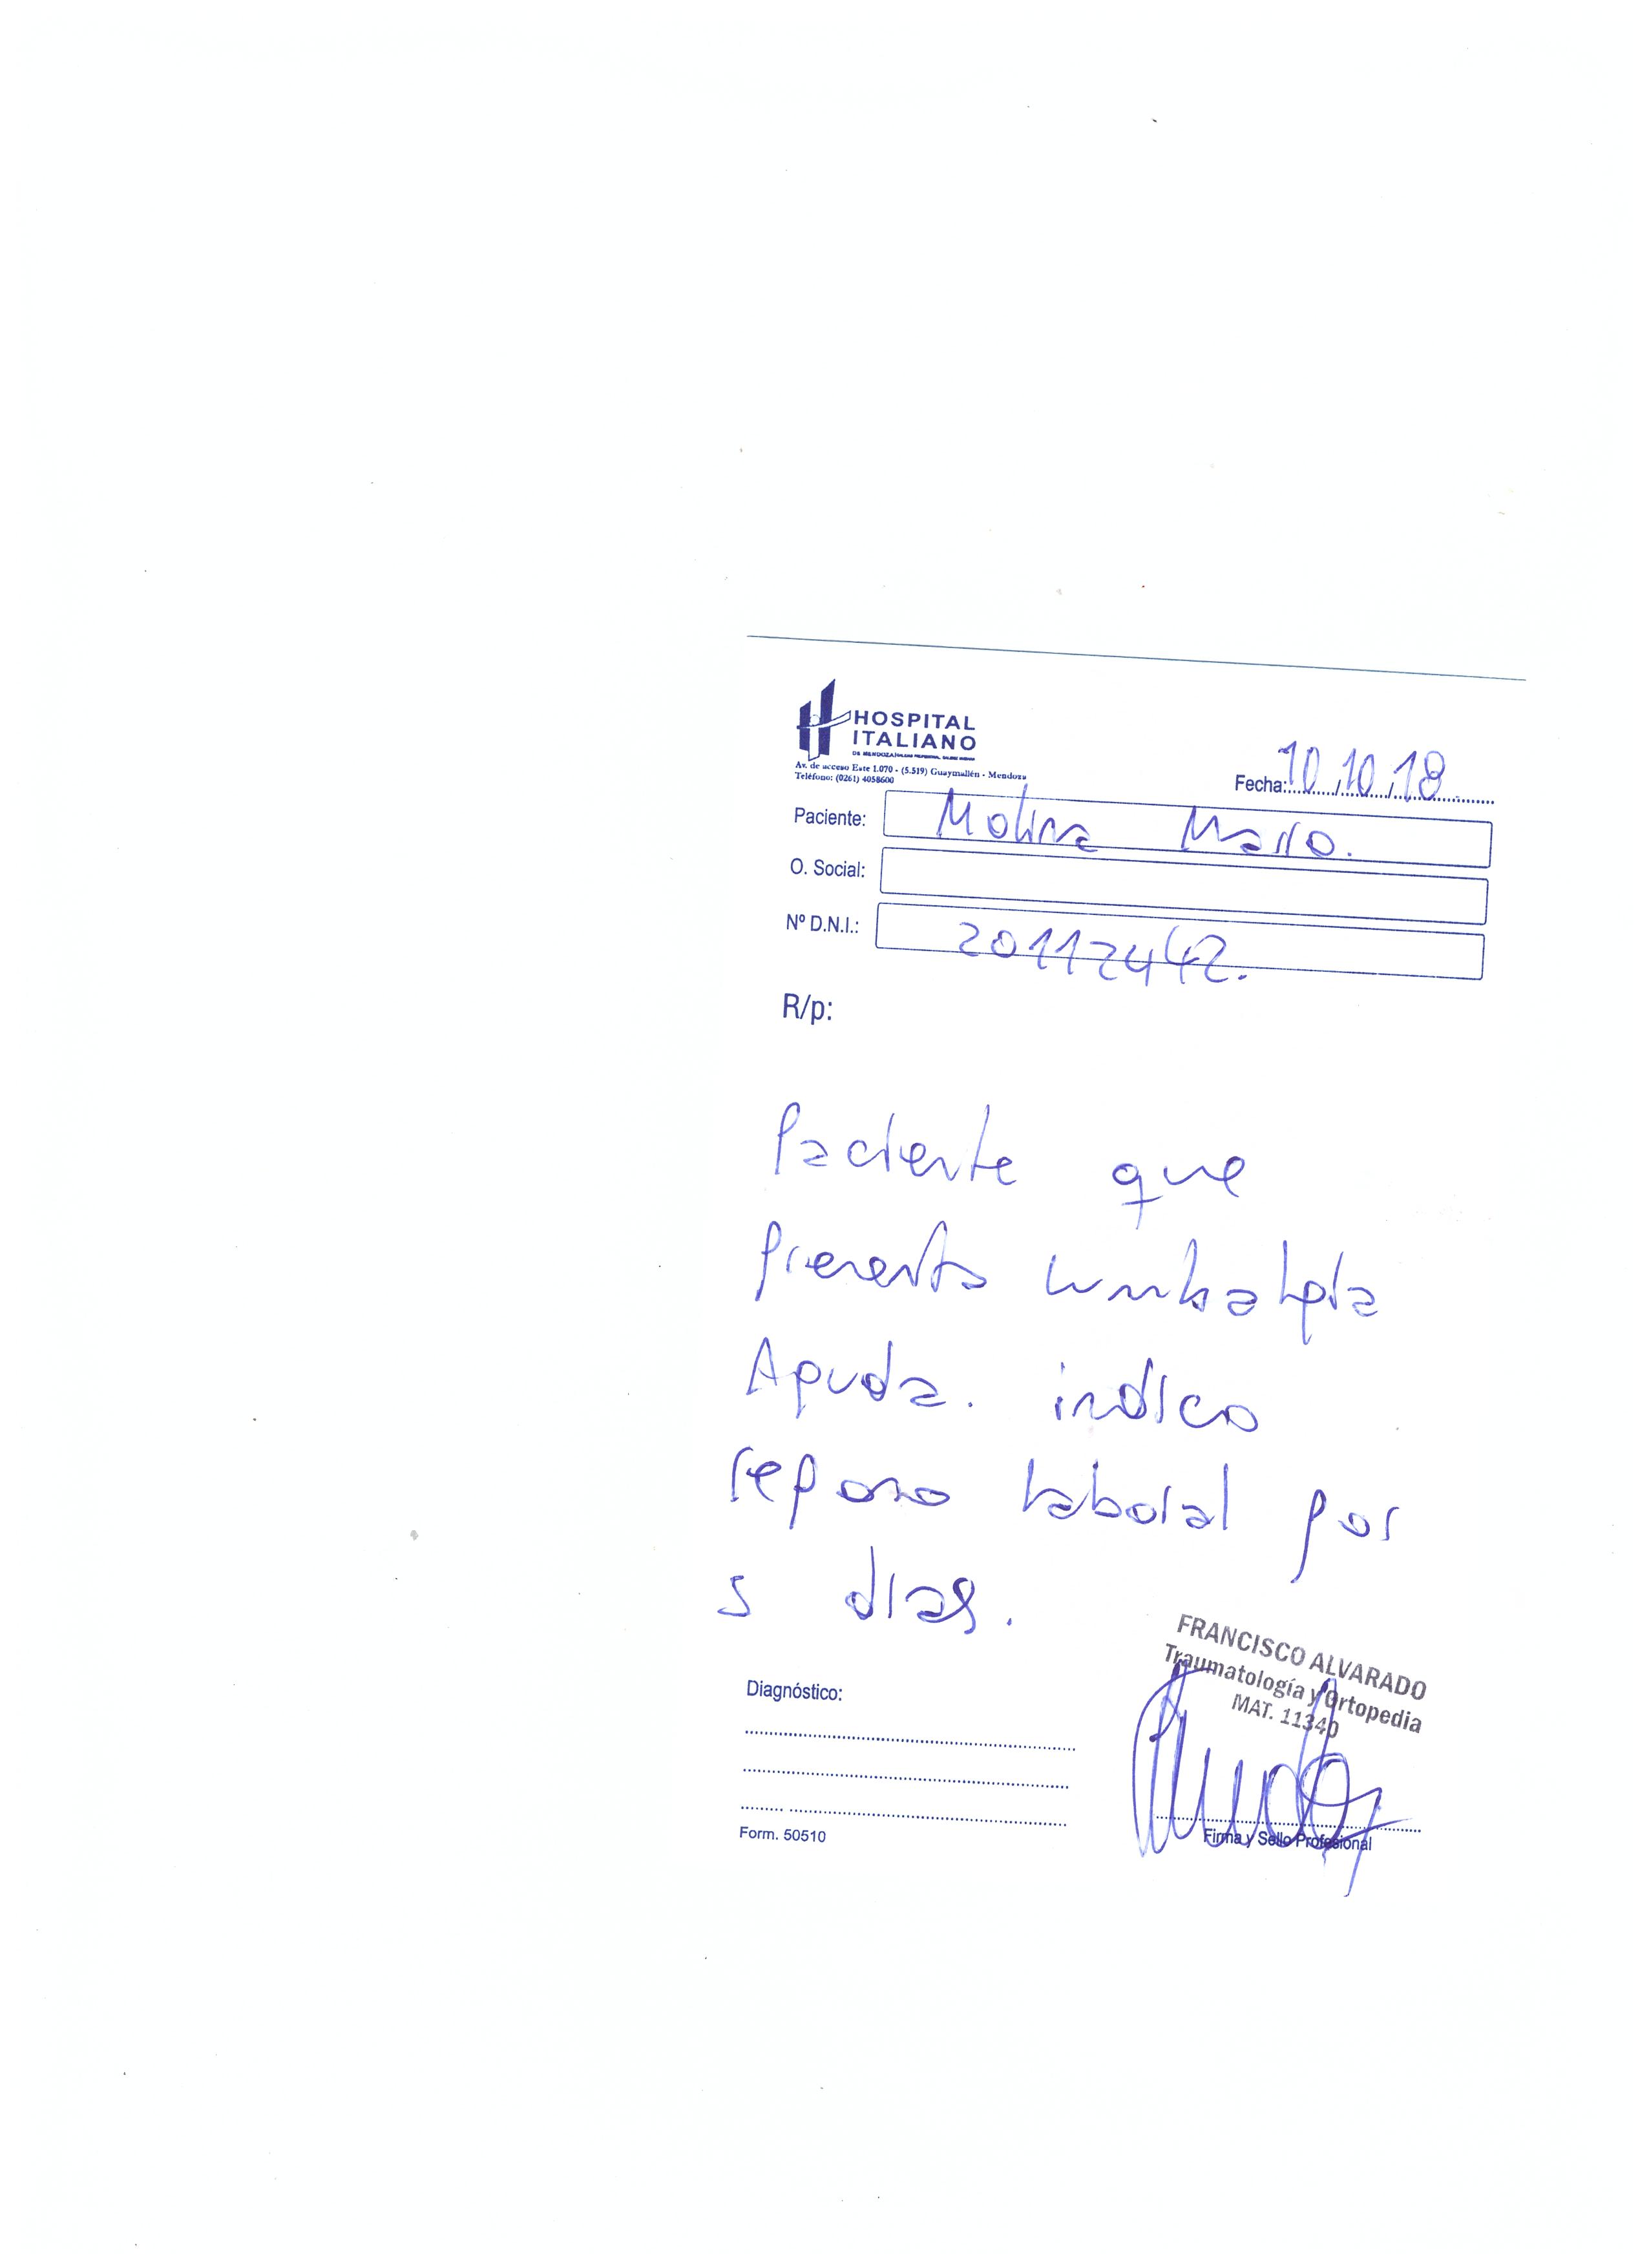 HOSPITAL
ITALIANO
Av. de acceso Este 1.070 - (5.519) Guaymallén - Mendoza
Teléfono: (0261) 4058600
Fecha: 10/10/18
Paciente: Molina Mario.
O. Social:
Nº D.N.I.: 20112442.
R/p:
Paciente que
presenta lumbalgia
Aguda. indico
reposo laboral por
5 dias.
FRANCISCO ALVARADO
Traumatología y Ortopedia
MAT. 11340
Diagnóstico:
Firma y Sello Profesional
Form. 50510